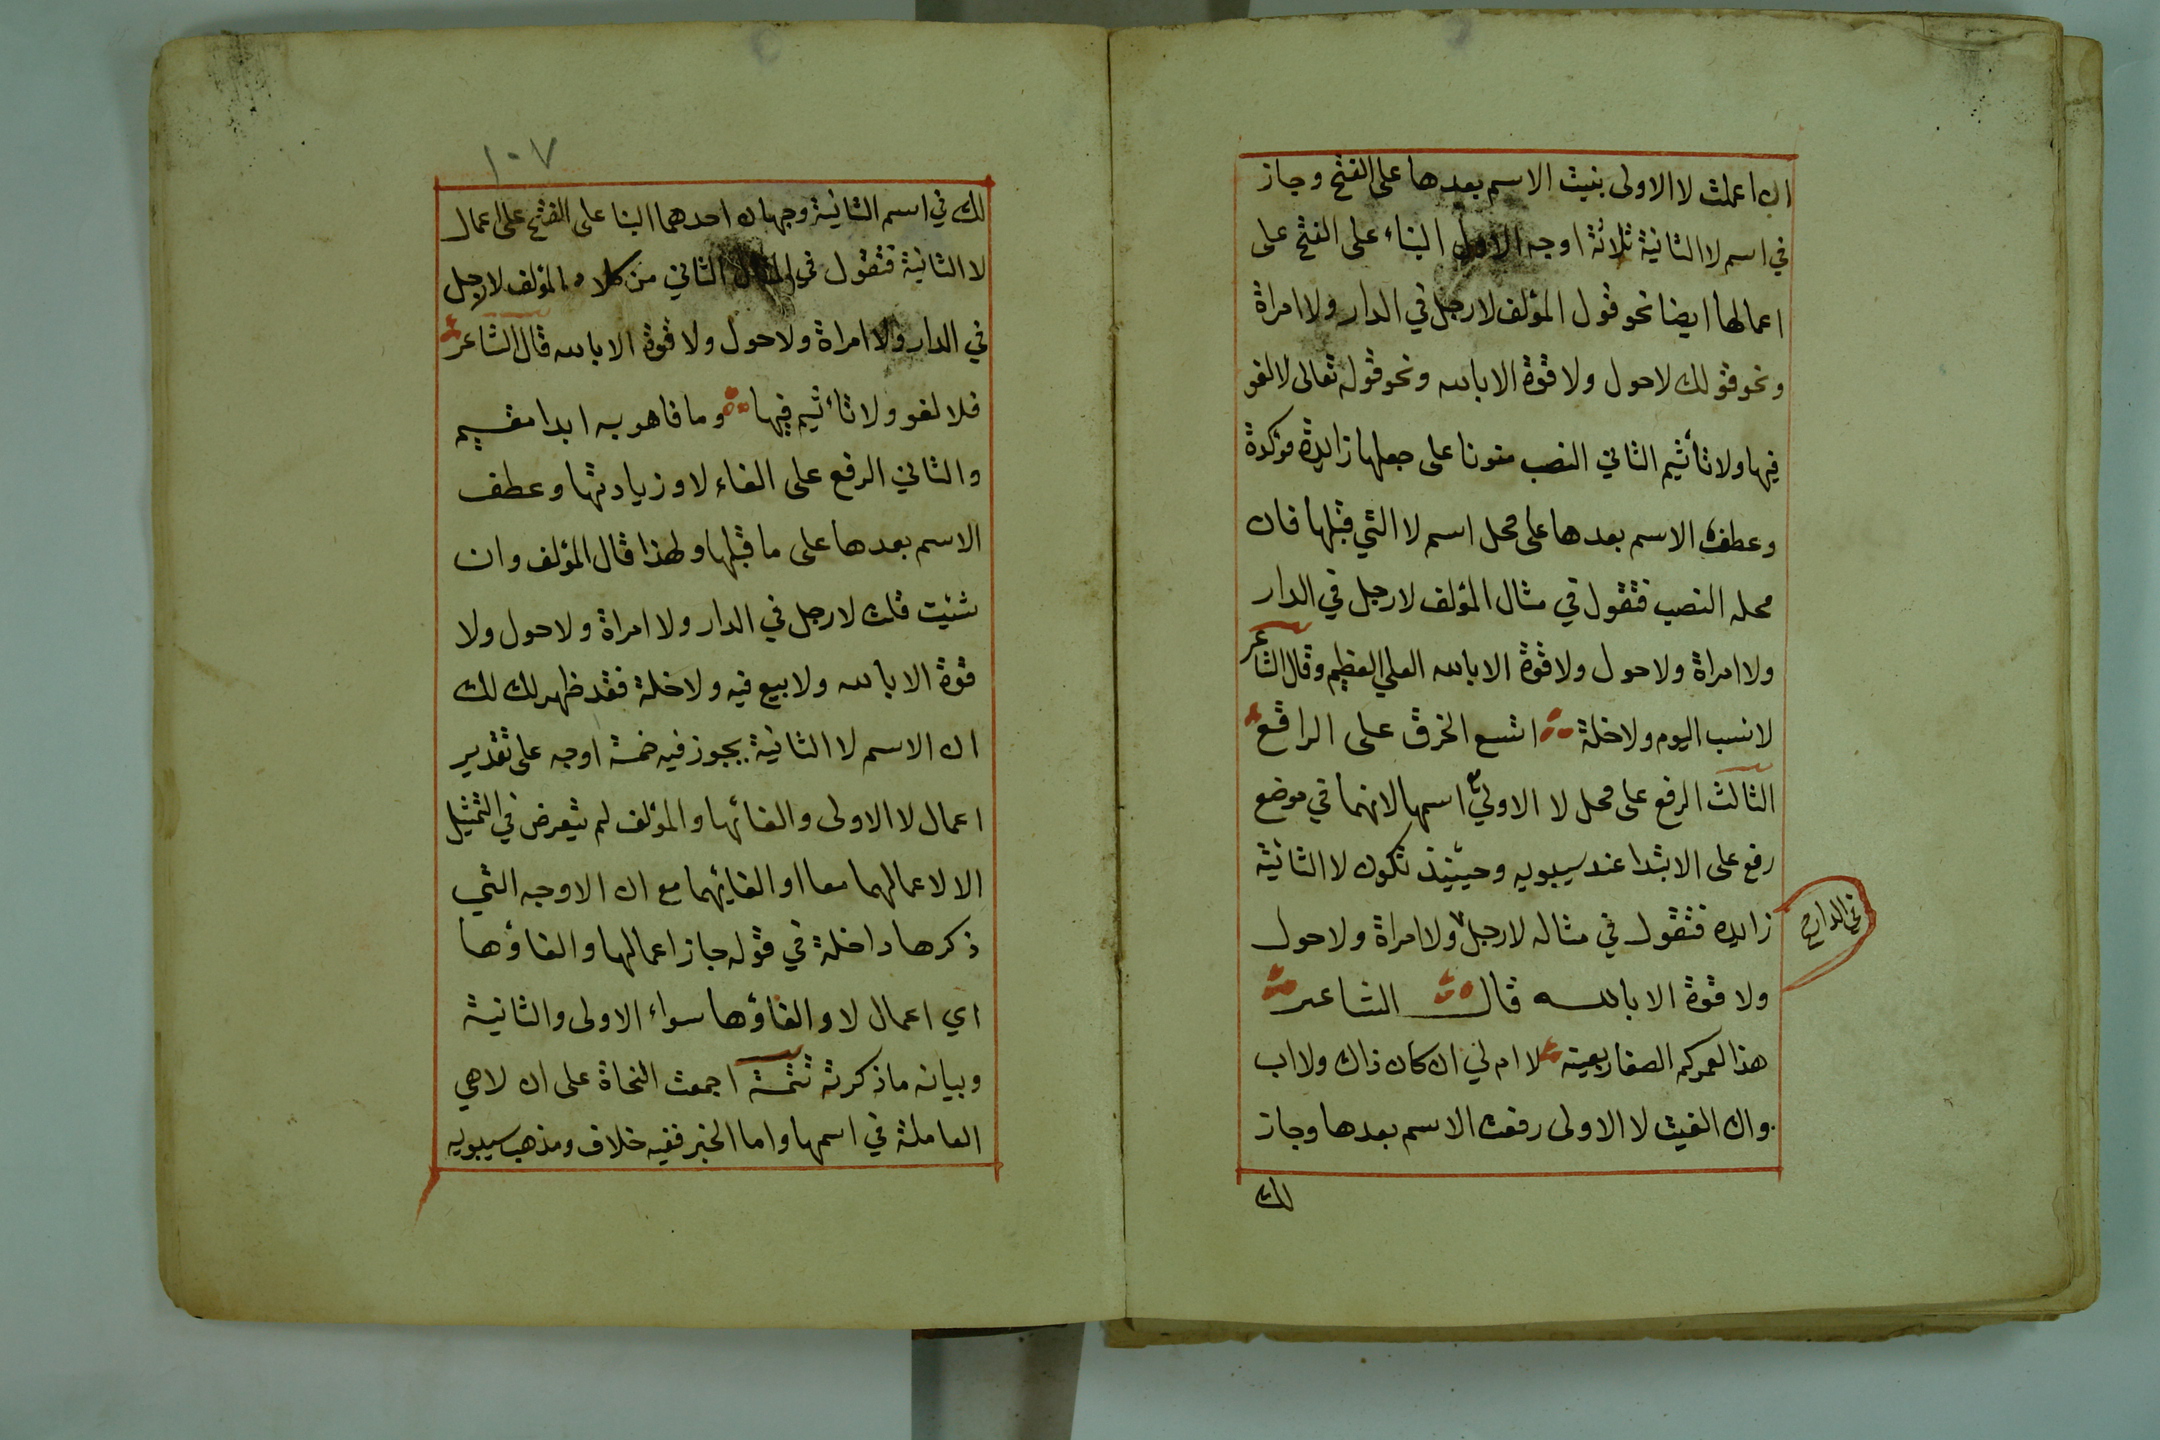 ان اعملت لا الاولى بنيت الاسم بعدها على الفتح وجاز
في اسم لا الثانية ثلاثة اوجه الاول البناء على الفتح على
اعمالها ايضا نحو قول المؤلف لا رجل في الدار ولا امراة
ونحو قولك لا حول ولا قوة الا بالله ونحو قوله تعالى لا لغو
فيها ولا تأثيم الثاني النصب منونا على جعلها زايدة مؤكدة
وعطف الاسم بعدها على محل اسم لا التي قبلها فان
محله النصب فتقول في مثال المؤلف لا رجل في الدار
ولا امراة ولا حول ولا قوة الا بالله العلي العظيم وقال الشاعر
لا نسب اليوم ولا خلة اتسع الخرق على الراقع
الثالث الرفع على محل لا الاولى اسمها لانهما في موضع
رفع على الابتدا عند سيبويه وحينيذ تكون لا الثانية
زايده فتقول في مثاله لا رجل ولا امراة ولا حول
في الدار صح
ولا قوة الا بالله قال الشاعر
هذا لعمركم الصغار بعينه لا ام لي ان كان ذاك ولا اب
وان الغيت لا الاولى رفعت الاسم بعدها وجاز
لك
١٠٧
لك في اسم الثانية وجهان احدهما البنا على الفتح على اعمال
لا الثانية فتقول في المثال الثاني من كلام المؤلف لا رجل
في الدار ولا امراة ولا حول ولا قوة الا بالله قال الشاعر
فلا لغو ولا تأثيم فيها وما فاهو به ابدا مقيم
والثاني الرفع على الغاء لا وزيادتها وعطف
الاسم بعدها على ما قبلها ولهذا قال المؤلف وان
شئيت قلت لا رجل في الدار ولا امراة ولا حول ولا
قوة الا بالله ولا بيع فيه ولا خلة فقد ظهر لك لك
ان الاسم لا الثانية يجوز فيه خمسة اوجه على تقدير
اعمال لا الاولى والغائها والمؤلف لم يتعرض في التمثيل
الا لاعمالهما معا او الغايهما مع ان الاوجه التي
ذكرها داخلة في قوله جاز اعمالها والغاؤها
اي اعمال لا والغاؤها سواء الاولى والثانية
وبيانه ما ذكرته تتمة اجمعت النحاة على ان لا هي
العاملة في اسمها واما الخبر ففيه خلاف ومذهب سيبويه